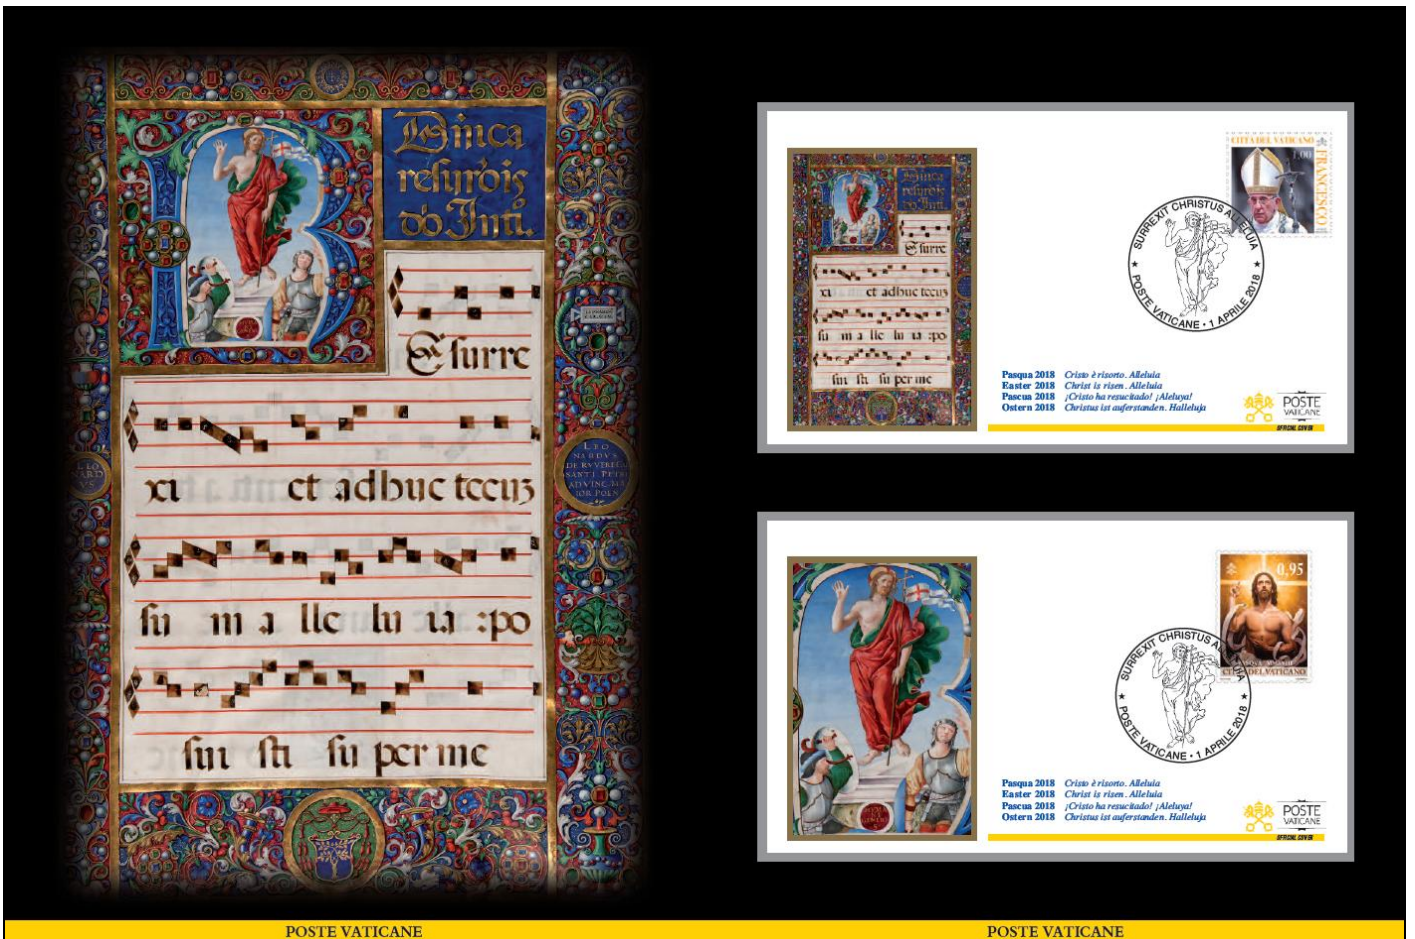 Dñica
resurr̃ois
dõ Intꝭ.
Esurre
xi et adhuc tecuz
su m a lle lu ia :po
sui sti su per me
LEO
NARD
VS
LEO
NARDVS
DE RVVERE CA
SANTI PETRI
AD VINC. MA
IOR POEN
CITTÀ DEL VATICANO
1,00
FRANCESCO
SURREXIT CHRISTUS ALLELUIA
POSTE VATICANE • 1 APRILE 2018
Pasqua 2018 Cristo è risorto. Alleluia
Easter 2018 Christ is risen. Alleluia
Pascua 2018 ¡Cristo ha resucitado! ¡Aleluya!
Ostern 2018 Christus ist auferstanden. Halleluja
POSTE
VATICANE
OFFICIAL COVER
0,95
CITTÀ DEL VATICANO
SURREXIT CHRISTUS ALLELUIA
POSTE VATICANE • 1 APRILE 2018
Pasqua 2018 Cristo è risorto. Alleluia
Easter 2018 Christ is risen. Alleluia
Pascua 2018 ¡Cristo ha resucitado! ¡Aleluya!
Ostern 2018 Christus ist auferstanden. Halleluja
POSTE
VATICANE
OFFICIAL COVER
POSTE VATICANE
POSTE VATICANE